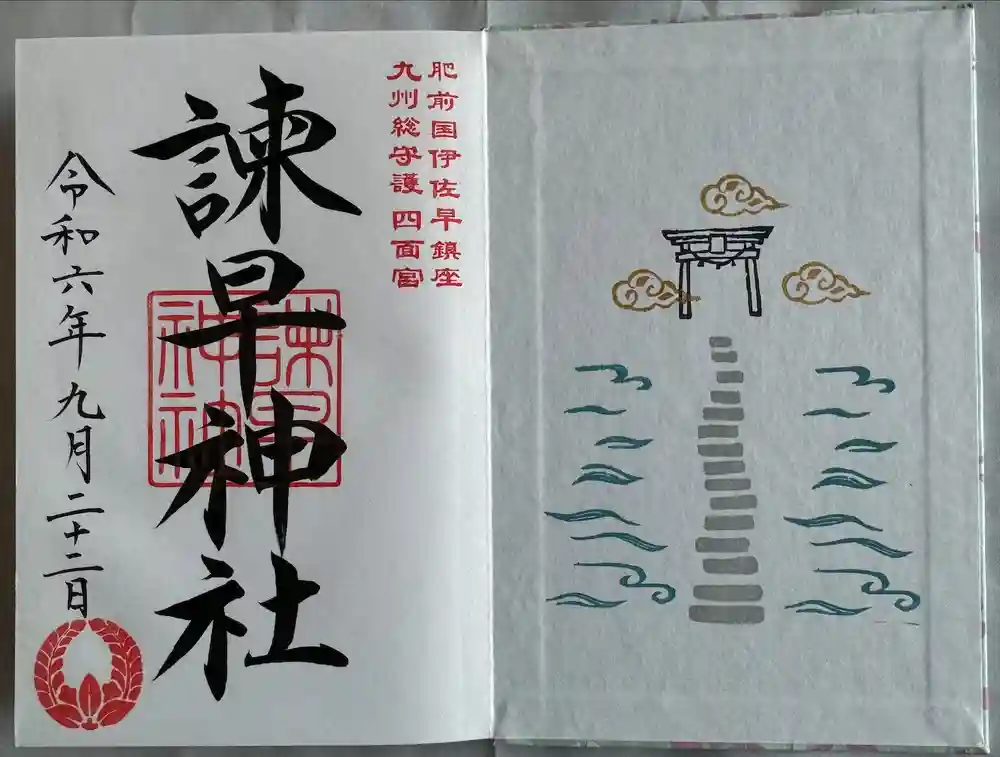 肥前国伊佐早鎮座
九州総守護 四面宮
諫早神社
諫早神社
令和六年九月二十二日